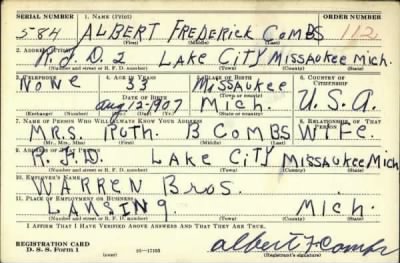 SERIAL NUMBER 1. NAME (Print) ORDER NUMBER
584 ALBERT FREDERICK COMBS 112
(First) (Middle) (Last)
2. ADDRESS (Print)
R.F.D. 2 LAKE CITY MISSAUKEE MICH.
(Number and street or R. F. D. number) (Town) (County) (State)
3. TELEPHONE 4. AGE IN YEARS 5. PLACE OF BIRTH 6. COUNTRY OF CITIZENSHIP
NONE 33 MISSAUKEE
(Town or county)
DATE OF BIRTH
Aug 12-1907 MICH. U.S.A.
(Exchange) (Number) (Mo.) (Day) (Yr.) (State or country)
7. NAME OF PERSON WHO WILL ALWAYS KNOW YOUR ADDRESS 8. RELATIONSHIP OF THAT PERSON
MRS. RUTH. B COMBS WIFE.
(Mr., Mrs., Miss) (First) (Middle) (Last)
9. ADDRESS OF THAT PERSON
R.F.D. LAKE CITY MISSAUKEE MICH
(Number and street or R. F. D. number) (Town) (County) (State)
10. EMPLOYER'S NAME
WARREN BROS.
11. PLACE OF EMPLOYMENT OR BUSINESS
LANSING. MICH.
(Number and street or R. F. D. number) (Town) (County) (State)
I AFFIRM THAT I HAVE VERIFIED ABOVE ANSWERS AND THAT THEY ARE TRUE.
REGISTRATION CARD
D. S. S. Form 1 16—17105 Albert F Combs
(Registrant's signature)